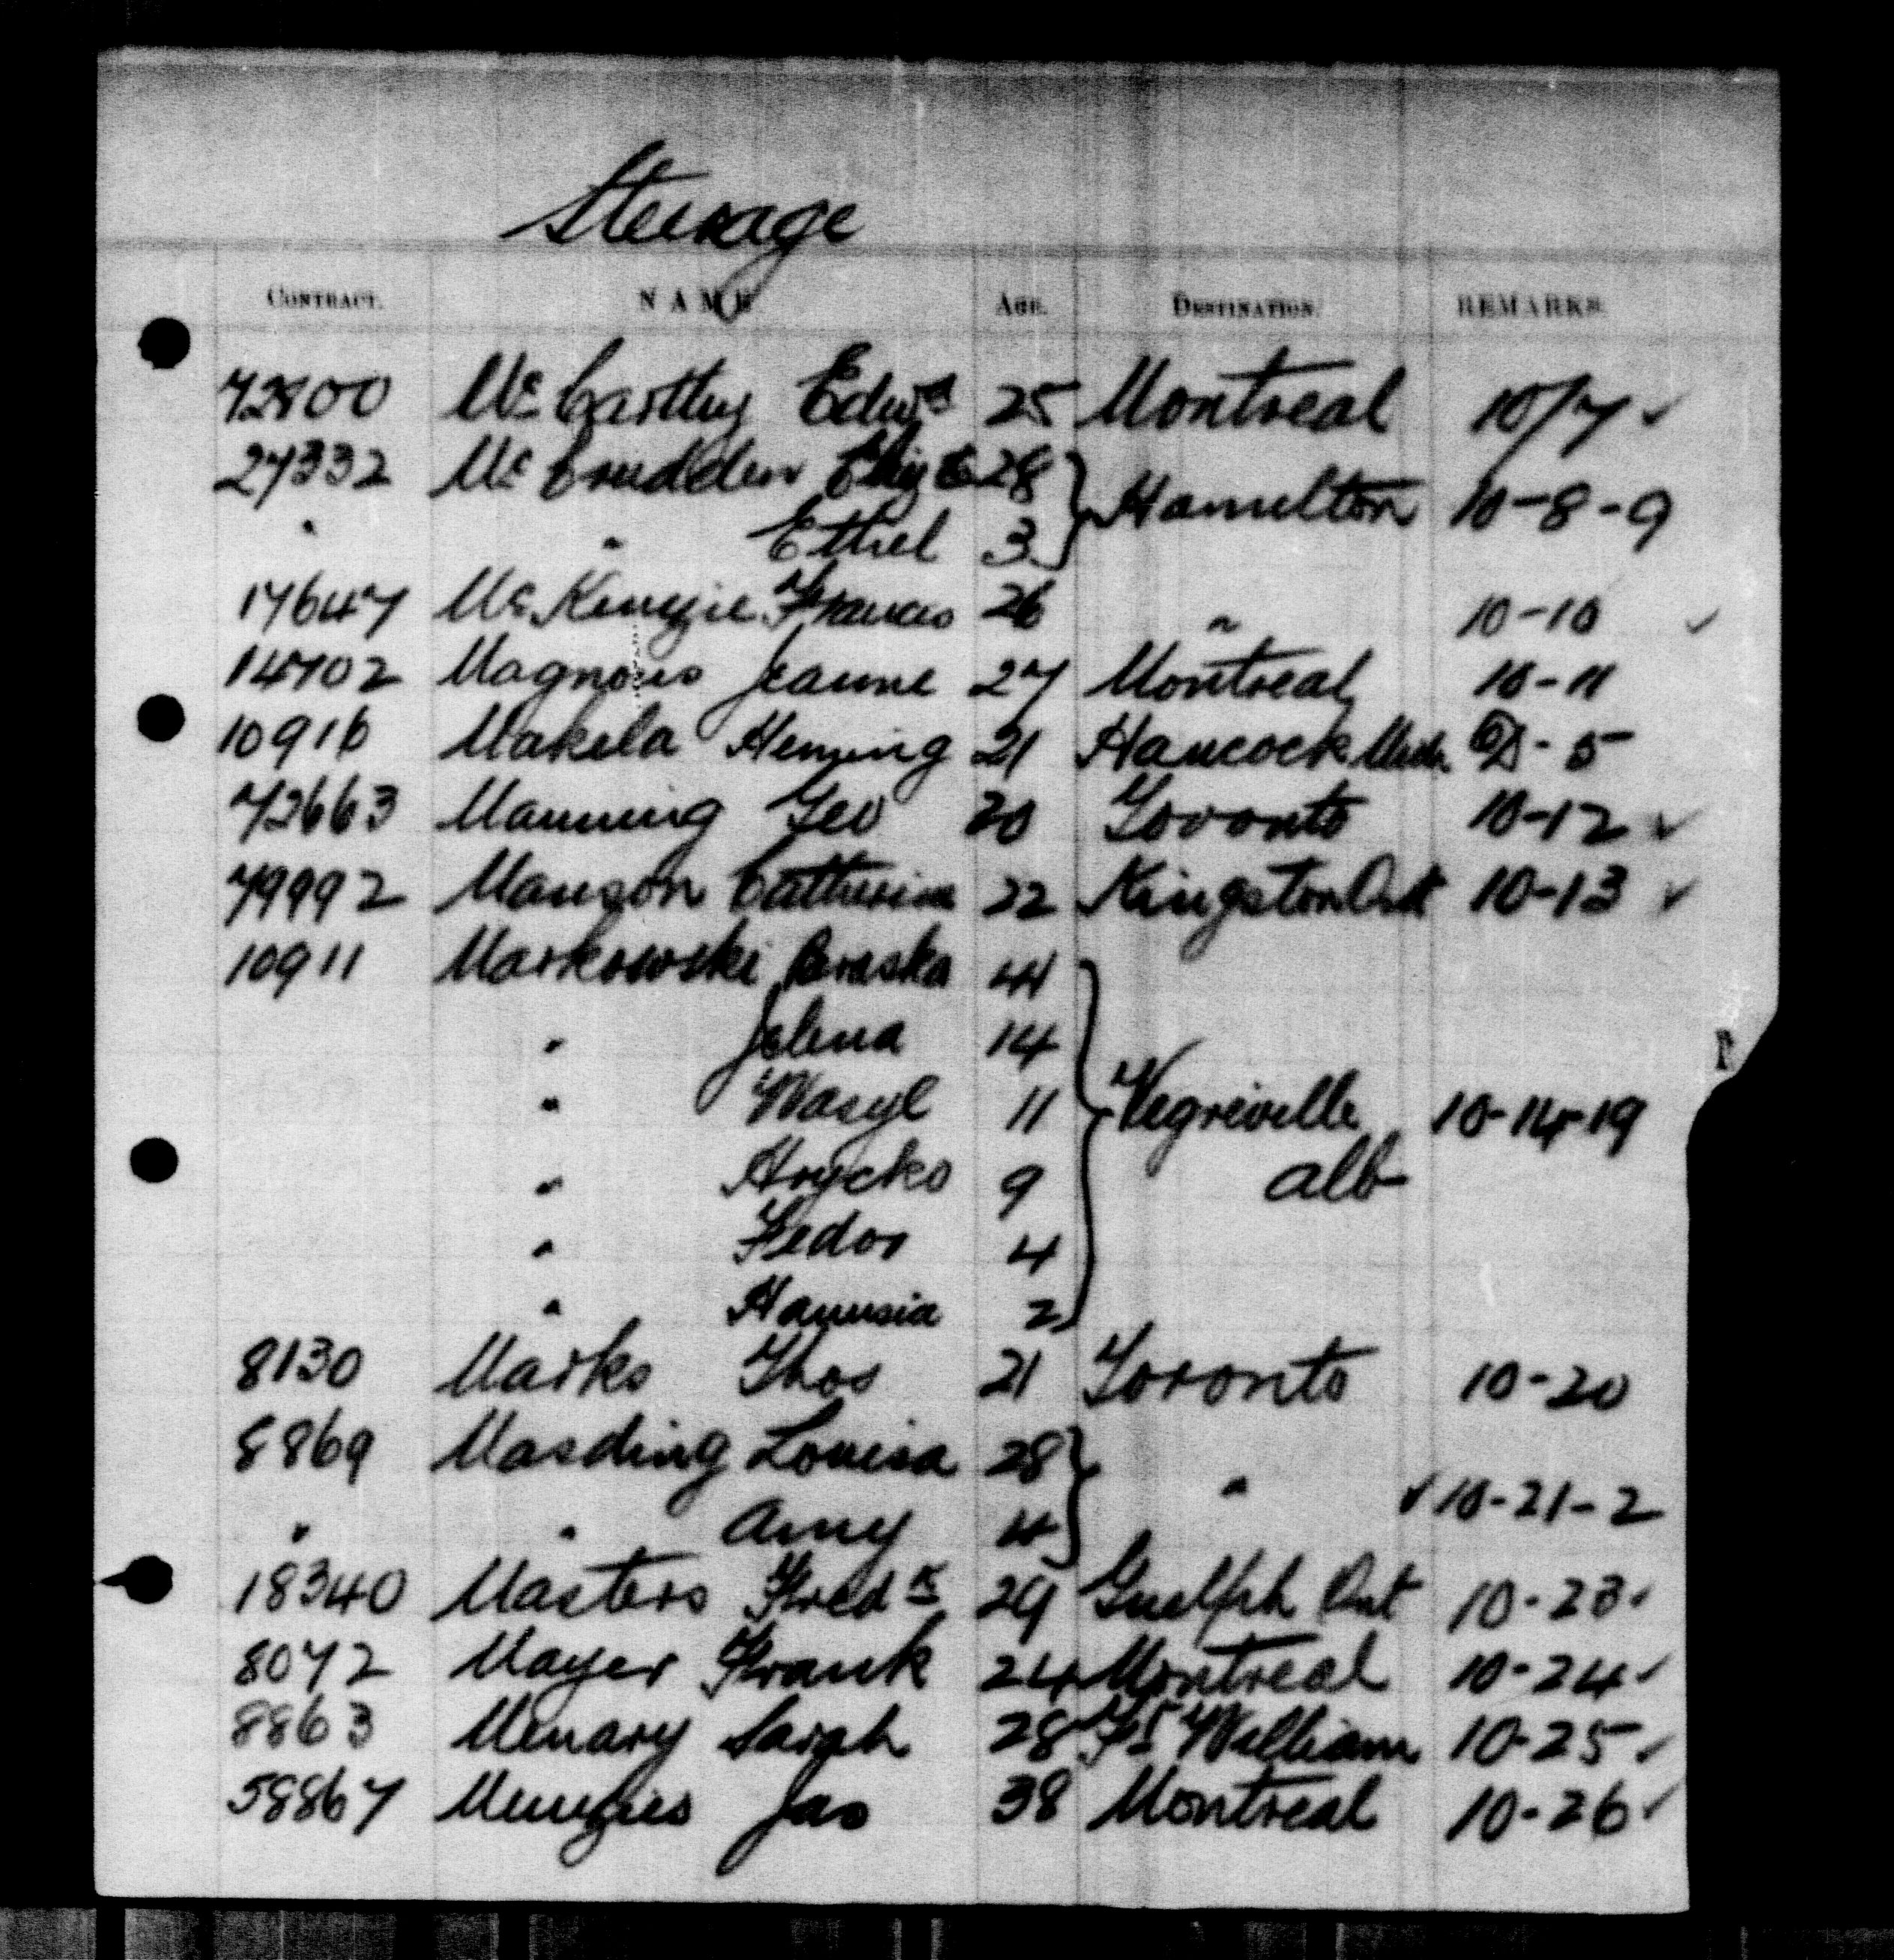 Steerage
CONTRACT. NAME AGE. DESTINATION. REMARKS.
72800 Mc Carthy Edwd 25 Montreal 10/7 ✓
27332 Mc Crudden Eliz 28
Hamilton 10-8-9
" " Ethel 3
17647 Mc Kenzie Frances 26 " 10-10 ✓
14702 Magnois Jeanne 27 Montreal 10-11
10916 Makela Heming 21 Hancock Mich - 5
72663 Manning Geo 20 Toronto 10-12 ✓
79992 Manson Catherine 22 Kingston Ont 10-13 ✓
10911 Markowski Paraska 44
" Jelena 14
" Wasyl 11 Vegreville 10-14-19
" Hrycko 9 Alb
" Fedor 4
" Hanusia 2
8130 Marks Thos 21 Toronto 10-20
8869 Masding Louisa 28
" ✓ 10-21-2
" " Amy 4
18340 Masters Fredk 29 Guelph Ont 10-23 ✓
8072 Mayer Frank 24 Montreal 10-24 ✓
8863 Menary Sarah 28 Ft William 10-25 ✓
58867 Menzies Jas 38 Montreal 10-26 ✓